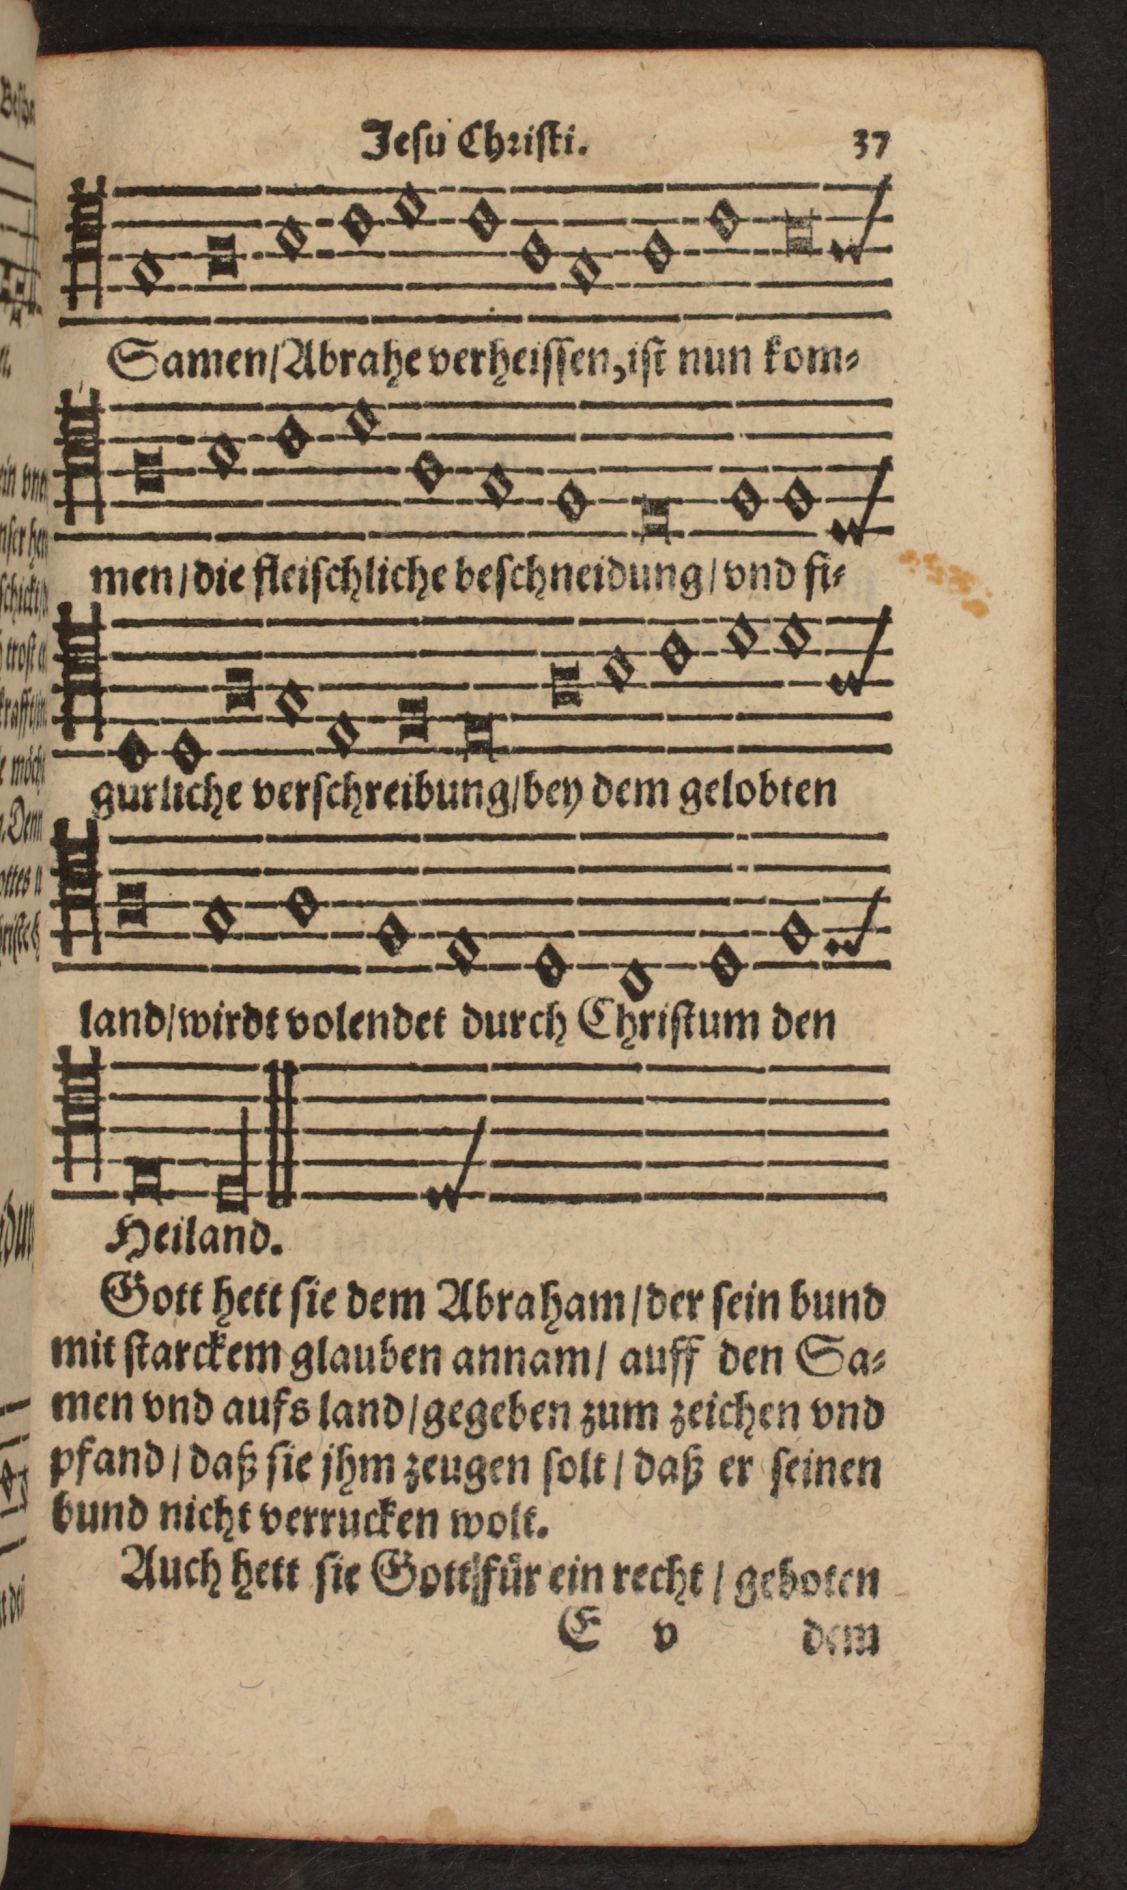 Jesu Christi. 37
Samen/Abrahe verheissen, ist nun kom⸗
men/die fleischliche beschneidung/vnd fi⸗
gurliche verschreibung/bey dem gelobten
land/wirdt volendet durch Christum den
Heiland.
Gott hett sie dem Abraham/der sein bund
mit starckem glauben annam/ auff den Sa⸗
men vnd aufs land/gegeben zum zeichen vnd
pfand/daß sie jhm zeugen solt/daß er seinen
bund nicht verrucken wolt.
Auch hett sie Gott für ein recht/geboten
E v dem